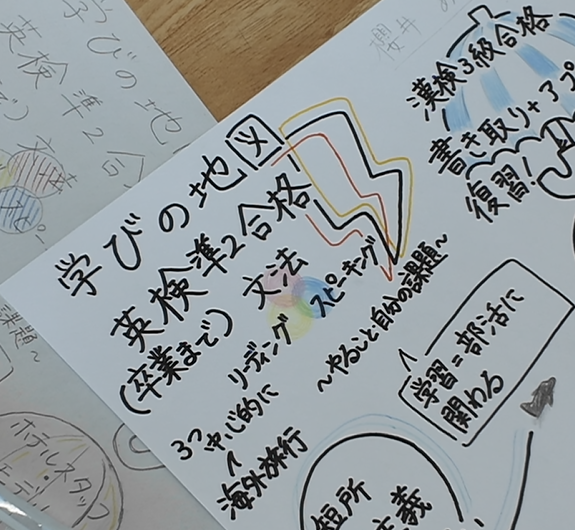 学びの地図
英検準2合格
(卒業まで)
文法
リーディング
スピーキング
3つ中心的に
海外旅行
〜やること自分の課題〜
漢検3級合格
書き取り+アプ
復習!
学習=部活に
関わる
短所
義
学びの地
英検準2合
文
課題〜
ホテルスタッフ
櫻井